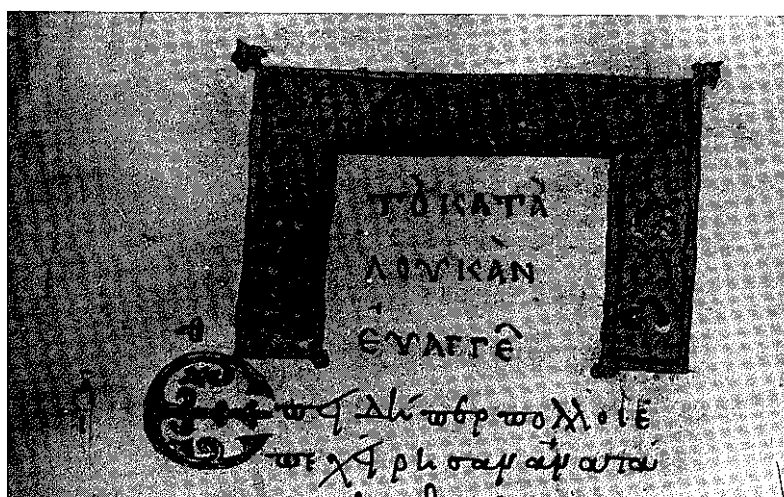 ΤῸ ΚΑΤᾺ
ΛΟΥΚᾺΝ
ἘΥΑΓΓΕ
Επειδήπερ πολλοὶ ἐ
πεχείρησαν ἀνατα